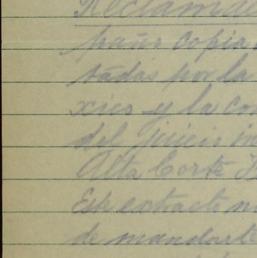 Reclama
paño copia
tadas por la
xies y la co
del juicio in
Alta Corte
Este extracto
de mandarle